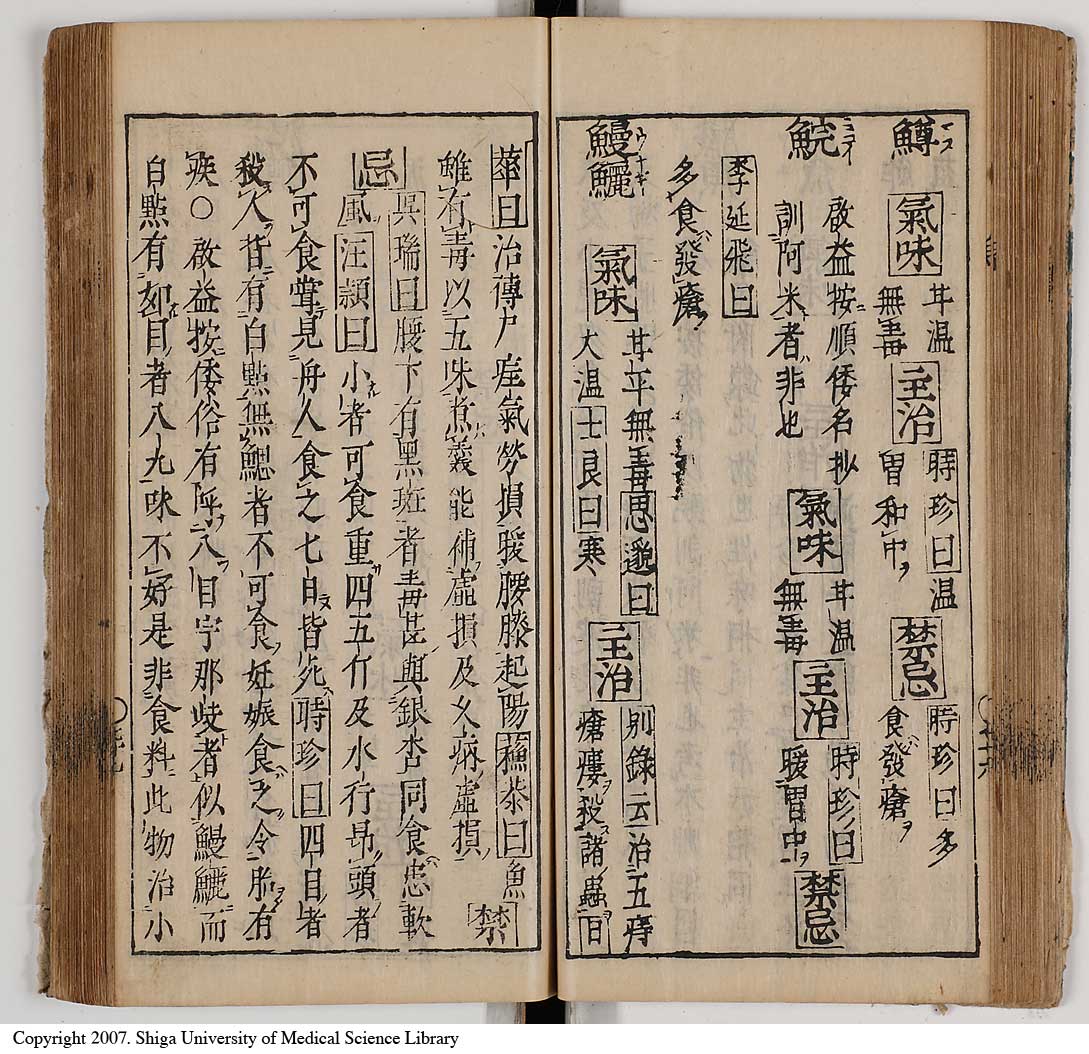 鱒 氣味 甘温
無毒 主治 時珍曰温
胃和中 禁忌 時珍曰多
食發瘡
鯇 啟益按順倭名抄
訓阿米者非也 氣味 甘温
無毒 主治 時珍曰
暖胃中 禁忌
李延飛曰
多食發瘡
鰻鱺 ウナギ 氣味 甘平無毒思邈曰
大温士良曰寒 主治 別錄云治五痔
瘡瘻殺諸蟲日
華曰治傳尸疰氣勞損暖腰膝起陽蘓恭曰魚
雖有毒以五味煮羹能補虛損及久病虛損 禁
忌 呉瑞曰腰下有黑斑者毒甚與銀杏同食患軟
風汪頴曰小者可食重四五斤及水行昻頭者
不可食嘗見舟人食之七日皆死時珍曰四目者
殺人背有白點無鰓者不可食妊娠食之令胎有
疾〇啟益按倭俗有呼八目宇那岐者似鰻鱺而
白點有如目者八九味不好是非食料此物治小
Copyright 2007. Shiga University of Medical Science Library